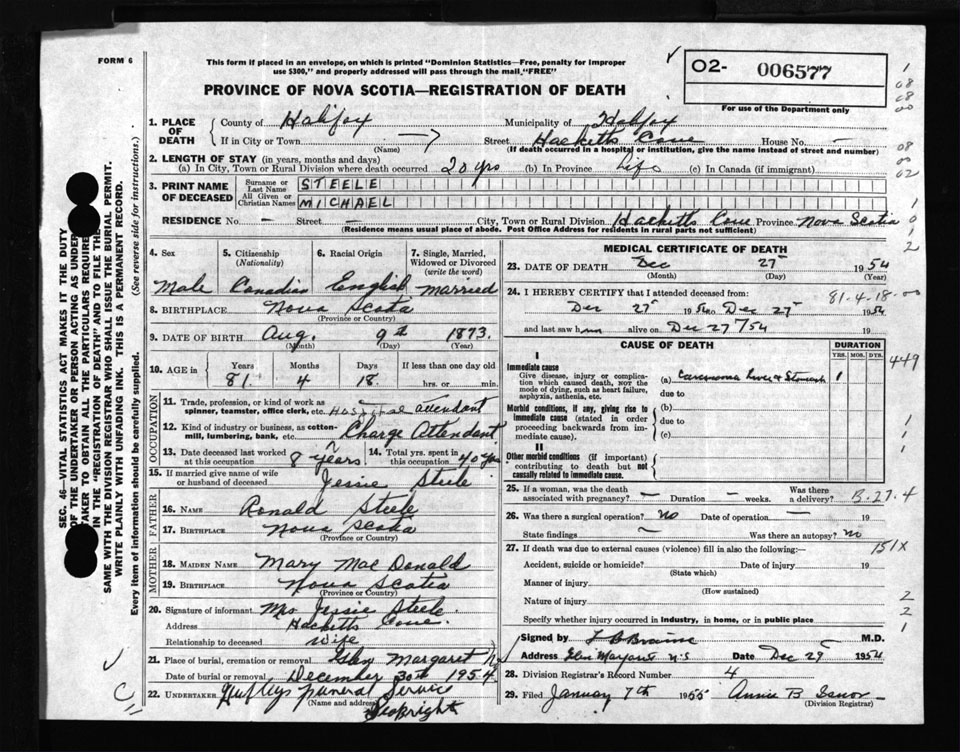 FORM 6
This form if placed in an envelope, on which is printed "Dominion Statistics—Free, penalty for improper
use $300," and properly addressed will pass through the mail "FREE"
O2- 006577
For use of the Department only
PROVINCE OF NOVA SCOTIA—REGISTRATION OF DEATH
1. PLACE OF DEATH
County of Halifax Municipality of Halifax
If in City or Town (Name) Street Hacketts Cove House No. —
(If death occurred in a hospital or institution, give the name instead of street and number)
2. LENGTH OF STAY (in years, months and days)
(a) In City, Town or Rural Division where death occurred 20 yrs (b) In Province Life (c) In Canada (if immigrant)
3. PRINT NAME OF DECEASED
Surname or Last Name STEELE
All Given or Christian Names MICHAEL
RESIDENCE No. — Street — City, Town or Rural Division Hacketts Cove Province Nova Scotia
(Residence means usual place of abode. Post Office Address for residents in rural parts not sufficient)
4. Sex
5. Citizenship (Nationality)
6. Racial Origin
7. Single, Married, Widowed or Divorced (write the word)
Male Canadian English married
8. BIRTHPLACE Nova Scota
(Province or Country)
9. DATE OF BIRTH Aug. 9th 1873.
(Month) (Day) (Year)
10. AGE in Years Months Days If less than one day old
81 4 18. hrs. or min.
OCCUPATION
11. Trade, profession, or kind of work as
spinner, teamster, office clerk, etc. Hospital attendant
12. Kind of industry or business, as cotton-
mill, lumbering, bank, etc. Charge Attendant
13. Date deceased last worked at this occupation 8 years
14. Total yrs. spent in this occupation 40 yrs
15. If married give name of wife or husband of deceased Jessie Steele
FATHER
16. NAME Ronald Steele
17. BIRTHPLACE Nova Scotia
(Province or Country)
MOTHER
18. MAIDEN NAME Mary Mac Donald
19. BIRTHPLACE Nova Scotia
(Province or Country)
20. Signature of informant Mrs Jessie Steele.
Address Hacketts Cove.
Relationship to deceased Wife
21. Place of burial, cremation or removal Glen Margaret
Date of burial or removal December 30th 1954.
22. UNDERTAKER Funeral Service
(Name and Address)
Seabright
MEDICAL CERTIFICATE OF DEATH
23. DATE OF DEATH Dec 27 1954
(Month) (Day) (Year)
24. I HEREBY CERTIFY that I attended deceased from: 81.4.18.00
Dec 27 1954 to Dec 27 1954
and last saw him alive on Dec 27/54 19
CAUSE OF DEATH
DURATION
YRS. MOS. DYS.
449
I
Immediate cause
Give disease, injury or complica-
tion which caused death, NOT the
mode of dying, such as heart failure,
asphyxia, asthenia, etc.
(a) Carcinoma Liver & Stomach 1
due to
Morbid conditions, if any, giving rise to
immediate cause (stated in order
proceeding backwards from im-
mediate cause).
(b)
due to
(c)
II
Other morbid conditions (if important)
contributing to death but not
causally related to immediate cause.
25. If a woman, was the death associated with pregnancy? — Duration — weeks. Was there a delivery? B.27.4
26. Was there a surgical operation? No Date of operation — 19
State findings Was there an autopsy? no
151X
27. If death was due to external causes (violence) fill in also the following:—
Accident, suicide or homicide? Date of injury 19
(State which)
Manner of injury
(How sustained)
Nature of injury
Specify whether injury occurred in industry, in home, or in public place
Signed by M.D.
Address Glen Margaret N.S Date Dec 29 1954
28. Division Registrar's Record Number 4
29. Filed January 7th 1955 Annie B Isnor
(Division Registrar)
SEC. 46—VITAL STATISTICS ACT MAKES IT THE DUTY
OF THE UNDERTAKER OR PERSON ACTING AS UNDER-
TAKER TO OBTAIN ALL THE PARTICULARS REQUIRED
IN THE "REGISTRATION OF DEATH" AND TO FILE THE
SAME WITH THE DIVISION REGISTRAR WHO SHALL ISSUE THE BURIAL PERMIT.
WRITE PLAINLY WITH UNFADING INK. THIS IS A PERMANENT RECORD.
Every item of information should be carefully supplied. (See reverse side for instructions.)